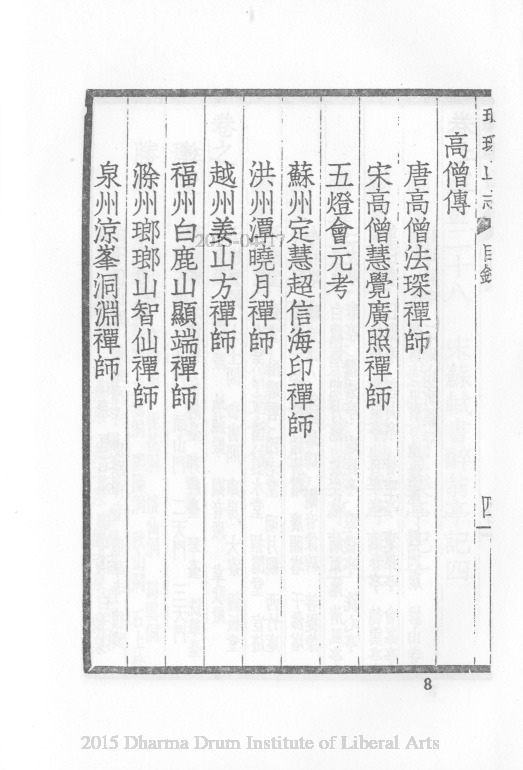 琅琊山志 目錄 四
高僧傳
唐高僧法琛禪師
宋高僧慧覺廣照禪師
五燈會元考
蘇州定慧超信海印禪師
洪州潭曉月禪師
越州姜山方禪師
福州白鹿山顯端禪師
滁州瑯瑯山智仙禪師
泉州涼峯洞淵禪師
8
2015 Dharma Drum Institute of Liberal Arts